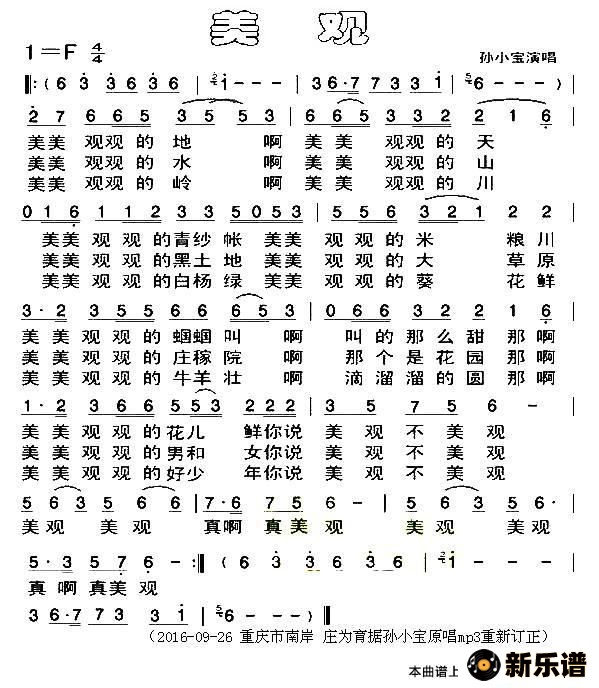 美观
1=F 4/4
孙小宝演唱
‖:( 6 3 3 6 3 6 | 1 - - - | 3 6·7 7 3 3 1 | 6 - - - ) |
2 7 6 6 5 3 5 5 3 | 6 5 3 3 2 2 1 6 |
美美 观观的 地 啊 美美 观观的 天
美美 观观的 水 啊 美美 观观的 山
美美 观观的 岭 啊 美美 观观的 川
0 1 6 1 1 2 3 3 5 0 5 3 | 5 5 6 3 2 1 2 2 |
美美 观观的青纱帐 美美 观观的 米 粮川
美美 观观的黑土地 美美 观观的 大 草原
美美 观观的白杨绿 美美 观观的 葵 花鲜
3·2 3 5 5 6 6 6 5 3 | 0 6 6 3 2 2 1 6 |
美美观观的 蝈蝈叫 啊 叫的那么甜那啊
美美观观的 庄稼院 啊 那个是花园那啊
美美观观的 牛羊壮 啊 滴溜溜的圆那啊
1·2 3 6 6 5 5 3 2 2 2 | 3 5 7 6 - |
美美观观的花儿 鲜你说 美观不美观
美美观观的男和 女你说 美观不美观
美美观观的好少 年你说 美观不美观
5 6 3 5 6 6 | 7·6 7 5 6 - | 5 6 3 5 6· |
美观 美观 真啊 真美 观 美观 美观
5·3 5 7 6 - :‖ ( 6 3 3 6 3 6 | 1 - - - |
真啊真美观
3 6·7 7 3 3 1 | 6 - - - ) ‖
(2016-09-26 重庆市南岸 庄为育据孙小宝原唱mp3重新订正)
本曲谱上 新乐谱